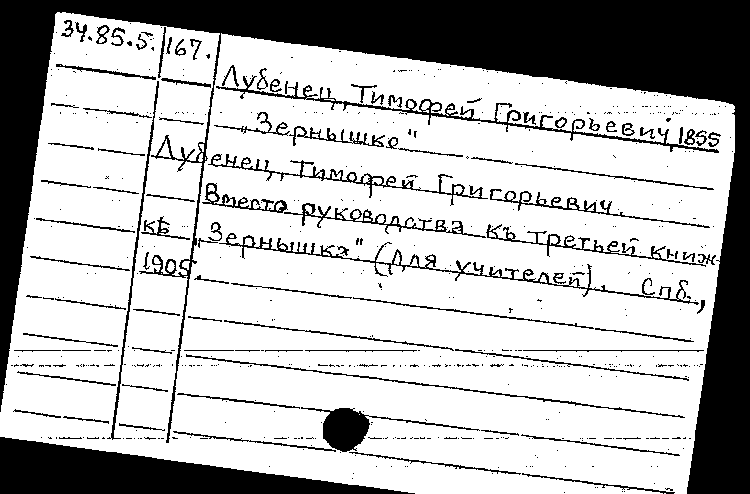 34.85.5. 167.
Лубенец, Тимофей Григорьевич, 1855
"Зернышко"
Лубенец, Тимофей Григорьевич.
Вместо руководства къ третьей книж-
кѣ "Зернышка". (Для учителей). Спб.,
1905.